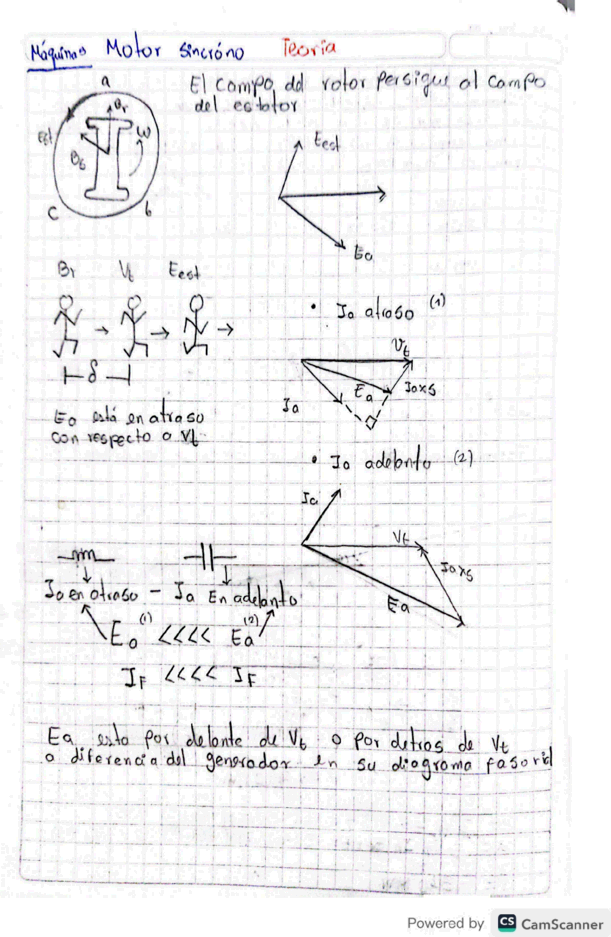 Máquinas Motor sincróno Teoria
El campo del rotor persigue al campo
del estator
a
Br
Est
w
c
b
Eest
Ea
Br Vt Eest
δ
Ea está en atraso
con respecto a Vt
• Ia atraso (1)
Vt
Ea
IaXs
Ia
• Ia adelanto (2)
Ia
Vt
IaXs
Ea
Ia en atraso - Ia En adelanto
Ea (1) <<<< Ea (2)
IF <<<< IF
Ea esta por delante de Vt o por detras de Vt
a diferencia del generador en su diagrama fasorial
Powered by CS CamScanner